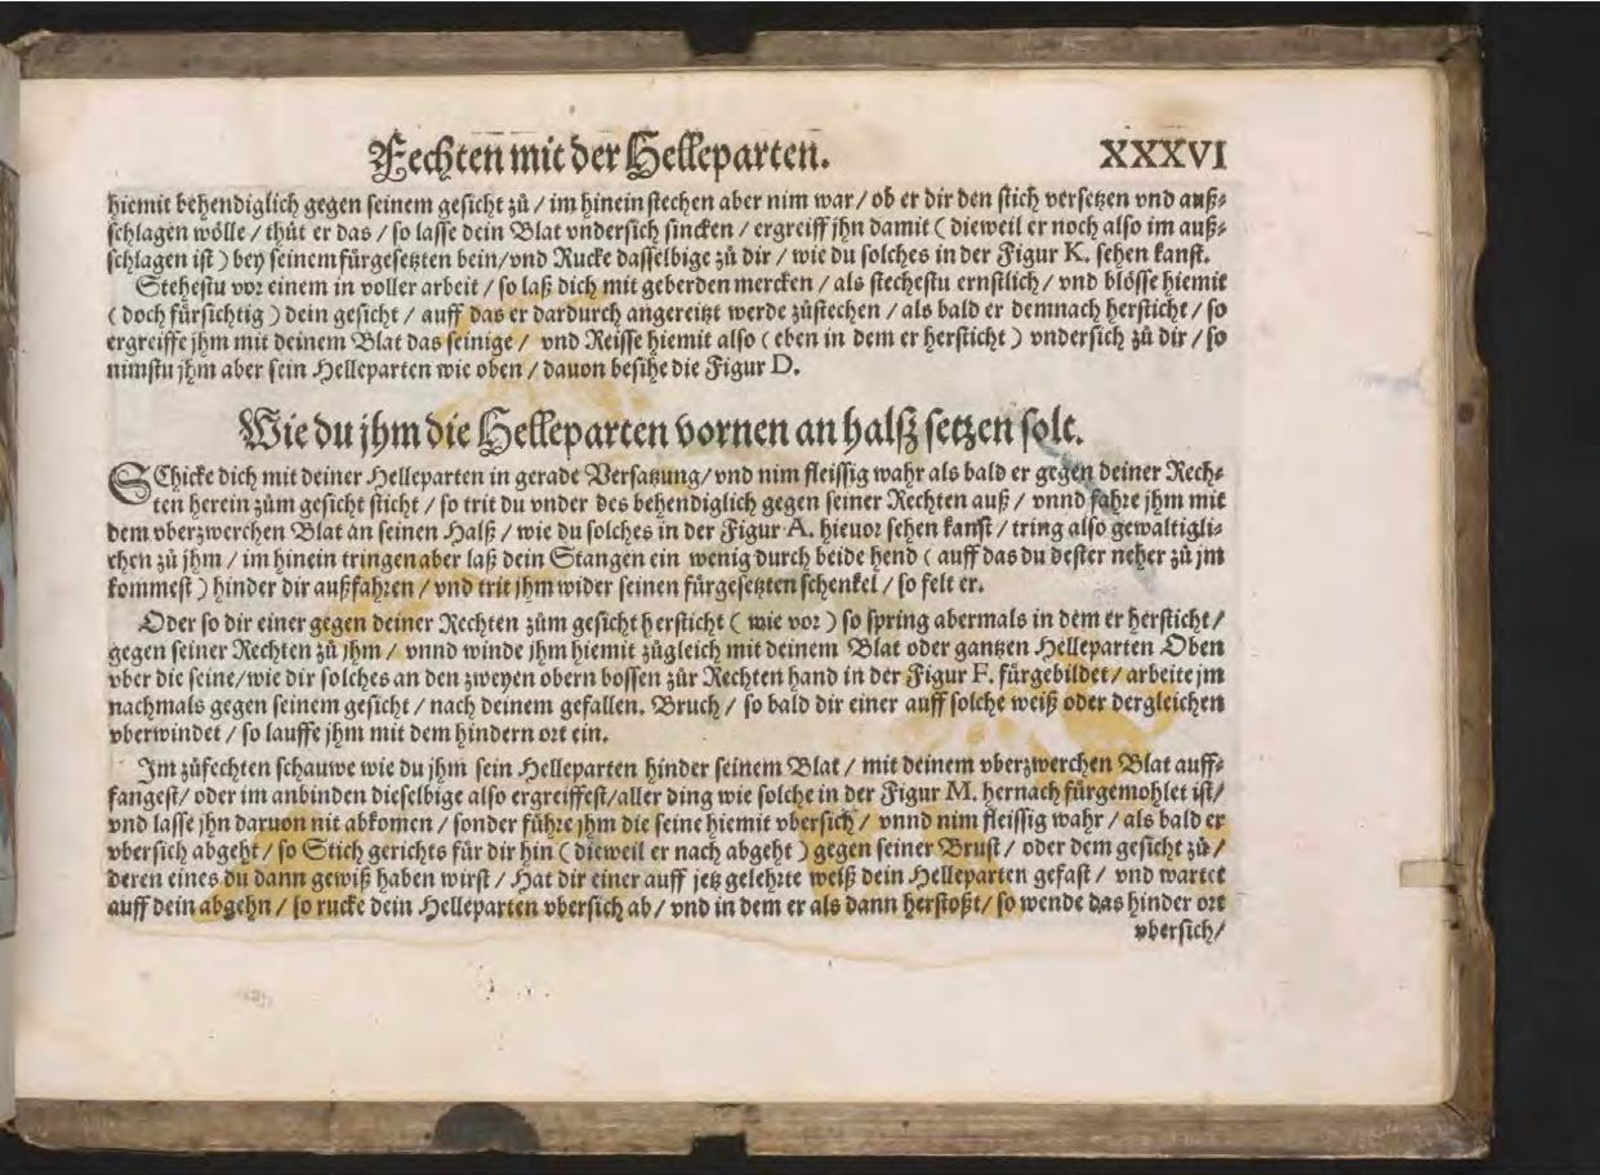 Fechten mit der Helleparten. XXXVI
hiemit behendiglich gegen seinem gesicht zů / im hinein stechen aber nim war / ob er dir den stich versetzen vnd auß⸗
schlagen wölle / thůt er das / so lasse dein Blat vndersich sincken / ergreiff jhn damit ( dieweil er noch also im auß⸗
schlagen ist ) bey seinem fürgesetzten bein / vnd Rucke dasselbige zů dir / wie du solches in der Figur K. sehen kanst.
Stehestu vor einem in voller arbeit / so laß dich mit geberden mercken / als stechestu ernstlich / vnd blösse hiemit
( doch fürsichtig ) dein gesicht / auff das er dardurch angereitzt werde zůstechen / als bald er demnach hersticht / so
ergreiffe jhm mit deinem Blat das seinige / vnd Reisse hiemit also ( eben in dem er hersticht ) vndersich zů dir / so
nimstu jhm aber sein Helleparten wie oben / dauon besihe die Figur D.
Wie du jhm die Helleparten vornen an halß setzen solt.
SChicke dich mit deiner Helleparten in gerade Versatzung / vnd nim fleissig wahr als bald er gegen deiner Rech⸗
ten herein zům gesicht sticht / so trit du vnder des behendiglich gegen seiner Rechten auß / vnnd fahre jhm mit
dem vberzwerchen Blat an seinen Halß / wie du solches in der Figur A. hieuor sehen kanst / tring also gewaltigli⸗
chen zů jhm / im hinein tringen aber laß dein Stangen ein wenig durch beide hend ( auff das du dester neher zů jm
kommest ) hinder dir außfahren / vnd trit jhm wider seinen fürgesetzten schenkel / so felt er.
Oder so dir einer gegen deiner Rechten zům gesicht hersticht ( wie vor ) so spring abermals in dem er hersticht /
gegen seiner Rechten zů jhm / vnnd winde jhm hiemit zůgleich mit deinem Blat oder gantzen Helleparten Oben
vber die seine / wie dir solches an den zweyen obern bossen zůr Rechten hand in der Figur F. fürgebildet / arbeite jm
nachmals gegen seinem gesicht / nach deinem gefallen. Bruch / so bald dir einer auff solche weiß oder dergleichen
vberwindet / so lauffe jhm mit dem hindern ort ein.
Im zůfechten schauwe wie du jhm sein Helleparten hinder seinem Blat / mit deinem vberzwerchen Blat auff⸗
fangest / oder im anbinden dieselbige also ergreiffest / aller ding wie solche in der Figur M. hernach fürgemohlet ist /
vnd lasse jhn daruon nit abkomen / sonder führe jhm die seine hiemit vbersich / vnnd nim fleissig wahr / als bald er
vbersich abgeht / so Stich gerichts für dir hin ( dieweil er nach abgeht ) gegen seiner Brust / oder dem gesicht zů /
deren eines du dann gewiß haben wirst / Hat dir einer auff jetz gelehrte weiß dein Helleparten gefast / vnd wartet
auff dein abgehn / so rucke dein Helleparten vbersich ab / vnd in dem er als dann herstoßt / so wende das hinder ort
vbersich /